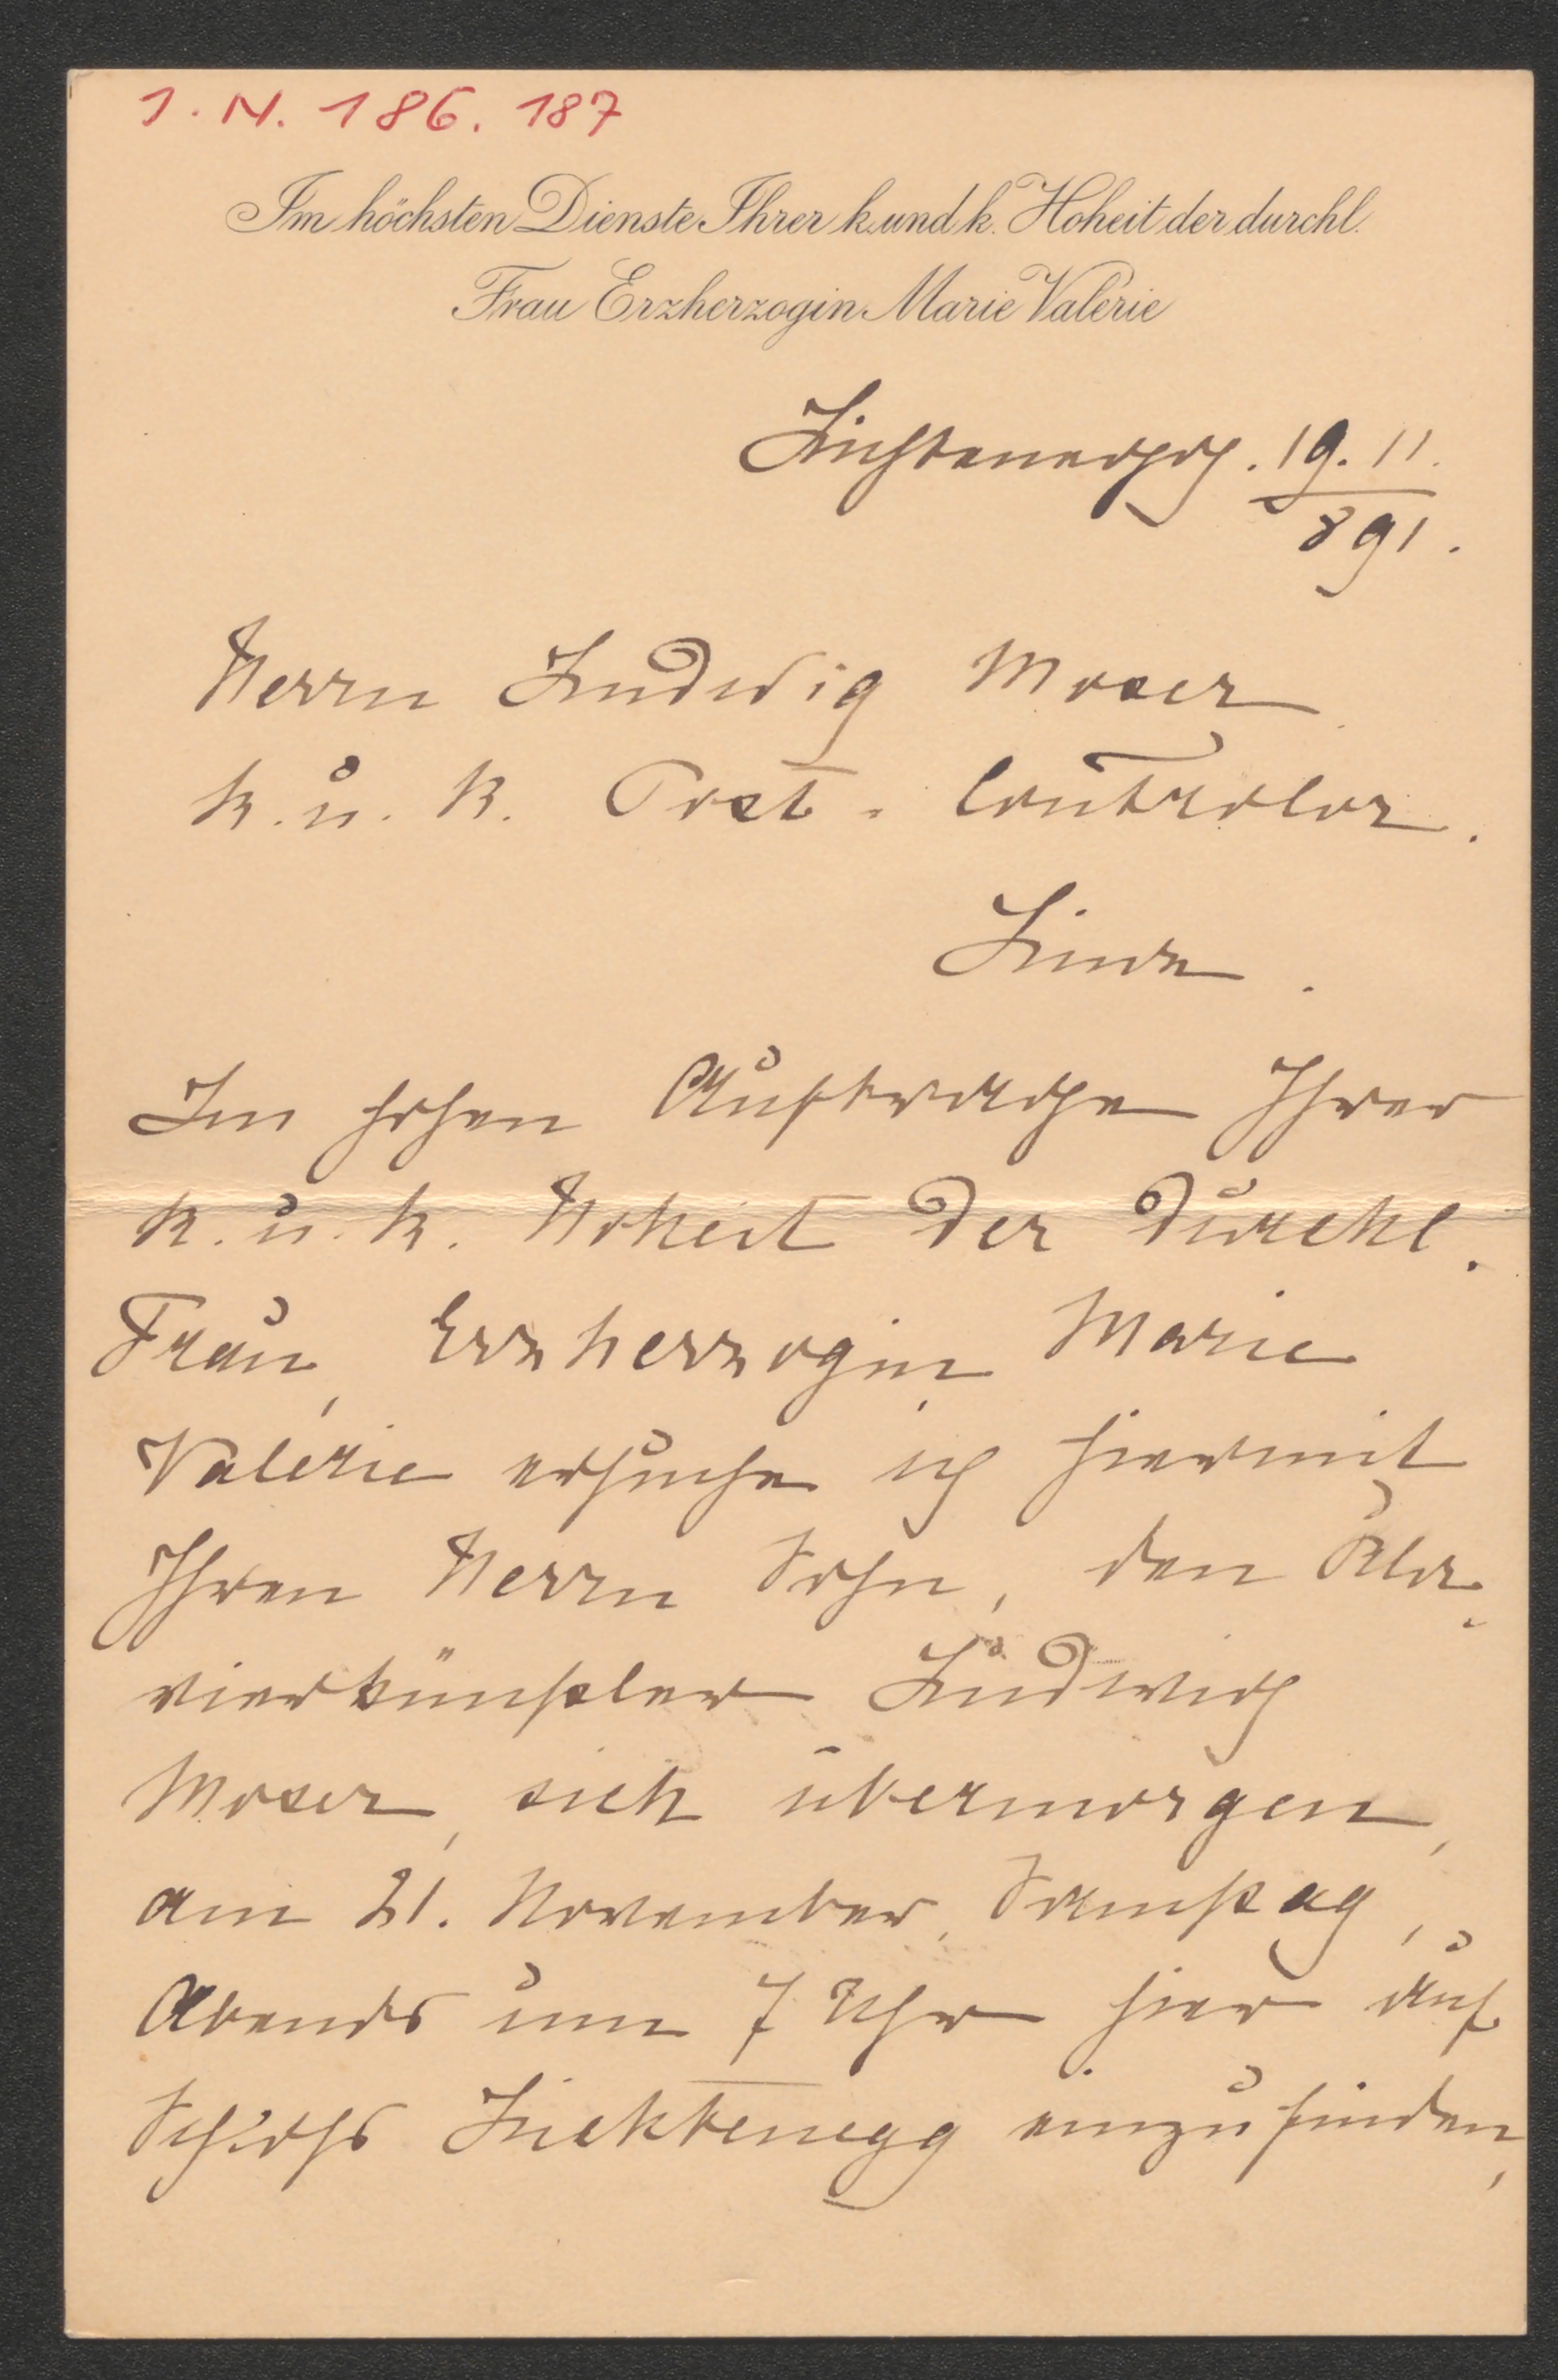 J. N. 186. 187
Im höchsten Dienste Ihrer k. und k. Hoheit der durchl.
Frau Erzherzogin Marie Valérie
Lichtenegg. 19. 11.
891.
Herrn Ludwig Moser
k. u. k. Post-Controlor.
Linz.
Im hohen Auftrage Ihrer
k. u. k. Hoheit der durchl.
Frau Erzherzogin Marie
Valérie ersuche ich hiermit
Ihren Herrn Sohn, den Kla-
vierkünstler Ludwig
Moser, sich übermorgen,
am 21. November, Samstag,
Abends um 7 Uhr hier auf
Schloß Lichtenegg einzufinden,